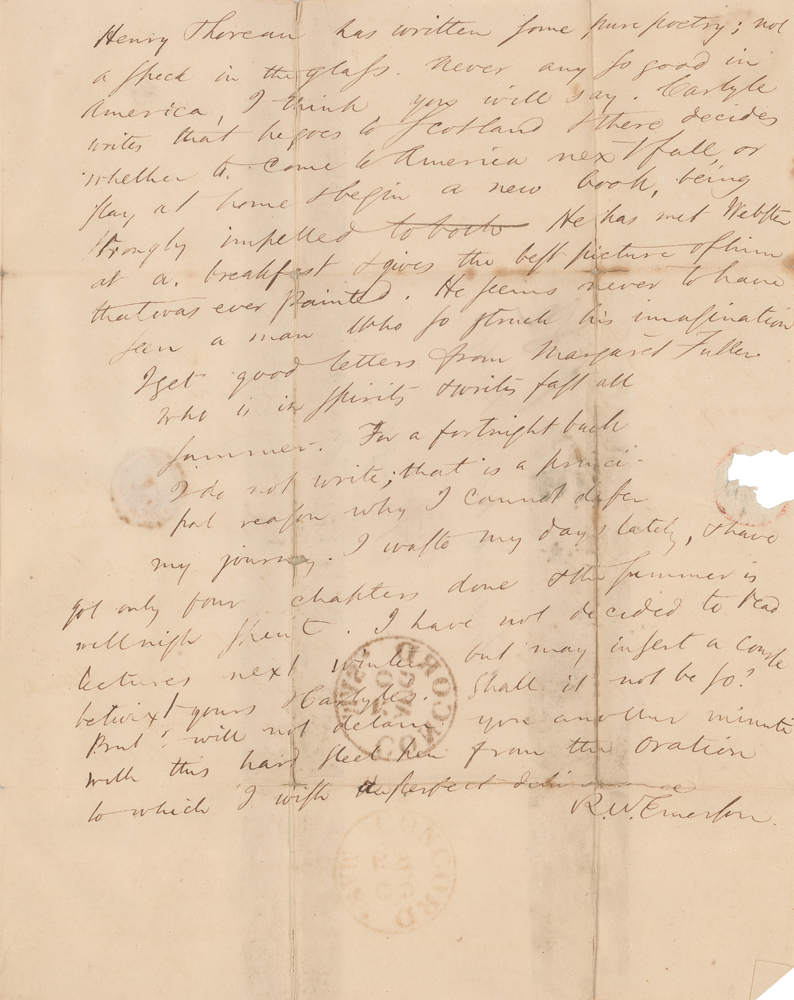 Henry Thoreau has written some pure poetry; not
a speck in the glass. Never any so good in
America, I think you will say. Carlyle
writes that he goes to Scotland & there decides
whether to come to America next fall, or
stay at home & begin a new book, being
strongly impelled to both He has met Webster
at a breakfast & gives the best picture of him
that was ever painted. He seems never to have
seen a man who so struck his imagination
I get good letters from Margaret Fuller
who is in spirits & writes fast all
summer. For a fortnight back
I do not write; that is a princi-
pal reason why I cannot defer
my journey. I waste my days lately, & have
got only four chapters done & the summer is
wellnigh spent. I have not decided to read
lectures next winter but may insert a course
betwixt yours & Carlyle's. Shall it not be so?
But I will not detain you another minute
with this hard steel pen from the Oration
to which I wish perfect
R. W. Emerson.
CONCORD
MAS.